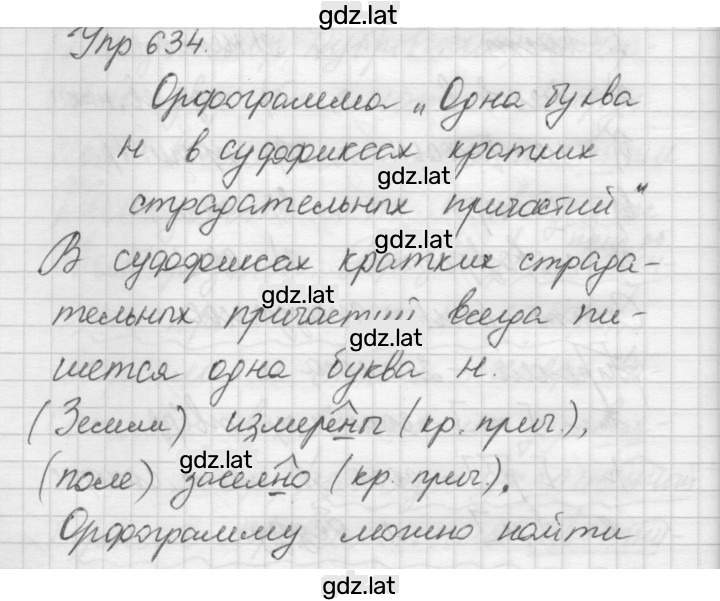 gdz.lat
Упр 634.
Орфограмма „Одна буква
н в суффиксах кратких
gdz.lat
страдательных причастий"
gdz.lat
В суффиксах кратких страда-
gdz.lat
тельных причастий всегда пи-
gdz.lat
шется одна буква н.
(Земли) измерены (кр. прич.),
gdz.lat
(поле) засеяно (кр. прич.).
Орфограмму можно найти
gdz.lat